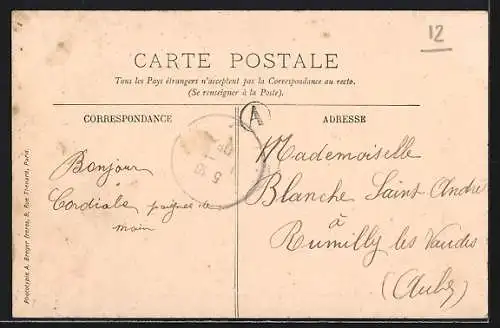 12
CARTE POSTALE
Tous les Pays étrangers n'acceptent pas la Correspondance au recto.
(Se renseigner à la Poste).
CORRESPONDANCE
Bonjour
Cordiale poignée de
main
A
ADRESSE
Mademoiselle
Blanche Saint André
à
Rumilly les Vaudes
(Aube)
Phototypie A. Breger frères, 9, Rue Thénard, Paris.